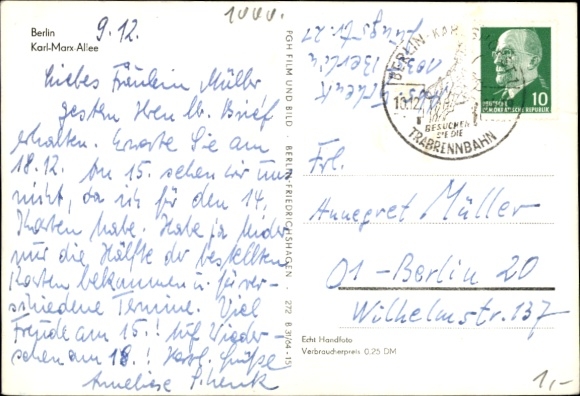 1000.
9.12.
Berlin
Karl-Marx-Allee
Liebes Fräulein Müller
gestern Ihren lb. Brief
erhalten. Erwarte Sie am
18.12. Am 15. sehen wir uns
nicht, da ich für den 14.
Karten habe. Habe ja leider
nur die Hälfte der bestellten
Karten bekommen u. für ver-
schiedene Termine. Viel
Freude am 15.! Auf Wieder-
sehen am 18.! Herzl. Grüße
Anneliese Schenk
PGH FILM UND BILD · BERLIN-FRIEDRICHSHAGEN · 272 B 31/64 · 15
Schenk
Berlin
BERLIN-KARLSHORST
10.12.
BESUCHEN
SIE DIE
TRABRENNBAHN
DEUTSCHE
DEMOKRATISCHE REPUBLIK
10
Frl.
Annegret Müller
01-Berlin 20
Wilhelmstr. 137
Echt Handfoto
Verbraucherpreis 0,25 DM
1,-